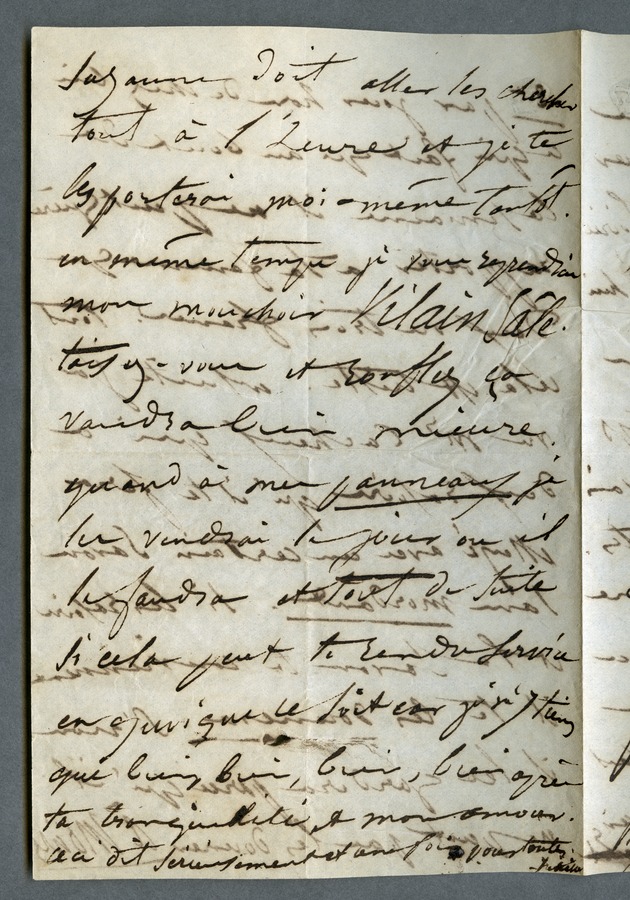 Suzanne doit aller les chercher
tout à l'heure et je te
les porterai moi-même tantôt.
en même temps je vous reprendrai
mon mouchoir Vilain Sale.
taisez-vous et ronflez ça
vaudra bien mieux.
quand à mes panneaux je
les vendrai le jour ou il
le faudra et tout de suite
si cela peut te rendre service
en quoique ce soit car je n'y tiens
que bien, bien, bien, bien après
ta tranquillité, et mon amour.
ceci dit sérieusement et une fois pour toutes.